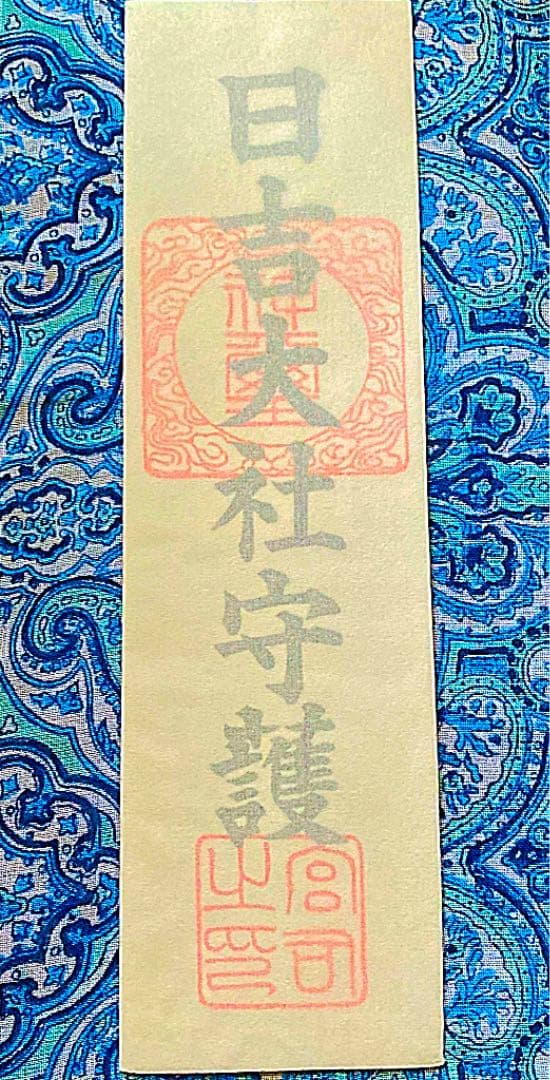 日吉大社守護
宮司之印